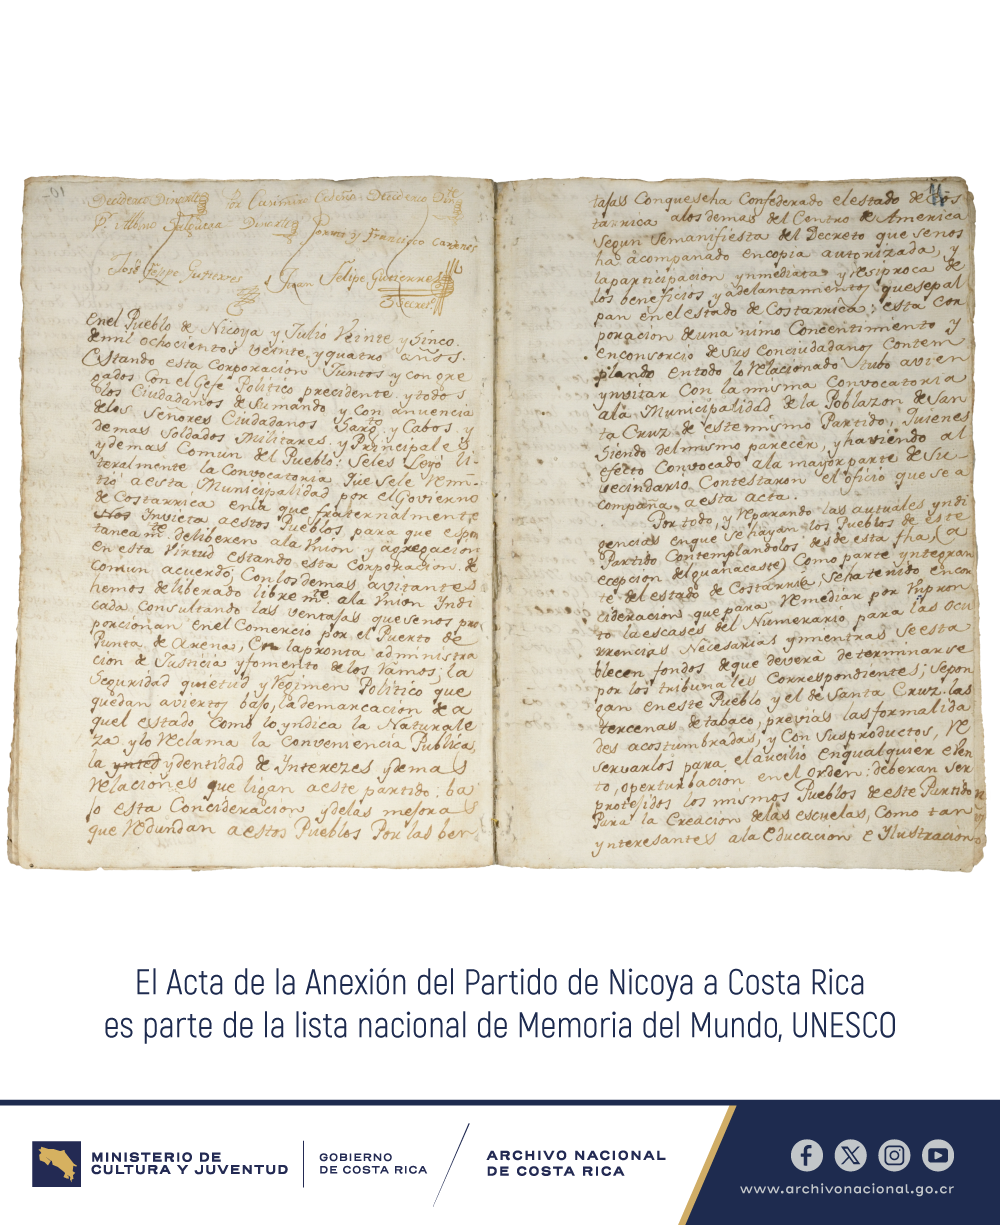 En el Pueblo de Nicoya y Julio Veinte y Sinco.
de mil ochocientos veinte y quatro años.
Estando esta Corporacion Juntos y con gre
gados Con el Gefe Politico precidente y todos
los Ciudadanos de Sumando y con anuencia
delos Señores Ciudadanos Sargtos y Cabos, y
demas Soldados Militares. y Principales
y demas Comun del Pueblo: Seles Leyó li-
teralmente la Convocatoria que Sele Remi-
tió a esta Municipalidad por el Govierno
de Costarrica en la que fraternalmente
Nos Invieta a estos Pueblos para que espon
taneamte. deliberen ala Vnion y agregacion
en esta Virtud estando esta Corporacion. de
comun acuerdo; Con los demas avitantes
hemos deliberado libremte. ala Vnion Yndi
cada consultando las ventajas que senos pro
porcionan en el Comercio por el Puerto de
Punta de arena; Con la pronta administra
cion de Justicia y fomento de los Ramos; la
Seguridad quietud y Regimen Politico que
quedan aviertos bajo, la demarcacion de a
quel estado Como lo yndica la Naturale
za y lo Reclama la Conveniencia Publica,
la ydentidad de Yntereses y demas
Relaciones que ligan a este partido: ba
jo esta Concideracion y delas mejoras
que Redundan a estos Pueblos Por las ben
tajas Con que seha Confederado el estado de Cos
tarrica alos demas del Centro de America
Segun Semanifiesta del Decreto que senos
ha acompañado en copia autorizada, y
la participacion ynmediata y resiproca de
los beneficios y adelantamientos que sepal
pan en el estado de Costarrica: esta Cor
poracion de una nimo Concentimiento y
en consorcio de Sus Conciudadanos Contem
plando en todo lo Relacionado tubo a vien
ynvitar Con la misma Convocatoria
ala Municipalidad de la Poblazon de San
ta Cruz de este mismo Partido, Quienes
Siendo del mismo parecer, y haviendo al
efecto Convocado ala mayor parte de Su
vecindario Contestaron el oficio que se a
compaña a esta acta.
Por todo, y Reparando las autuales yndi
gencias en que Se hayan los Pueblos de este
Partido Contemplandolos desde esta fha, (a
ecepcion del guanacaste) Como parte yntegran
te del estado de Costarrica, Seha tenido en con
cideracion que para Remediar por Ynpron
to la escasés del Numerario para las ocu
rrencias Necesarias y mientras Se esta
blecen fondos de que deverá determinarse
por los tribunales Correspondientes; Sepon
gan en este Pueblo y el de Santa Cruz. las
tercenas de tabaco, previas las formalida
des acostumbradas, y Con Susproductos, Re
servarlos para el aucilio en qualquier even
to, operturbacion en el Orden: deberan ser
protejidos los mismos Pueblos de este Partido
Para la Creacion delas escuelas, Como tan
ynteresantes ala Educacion e Ylustracion
El Acta de la Anexión del Partido de Nicoya a Costa Rica
es parte de la lista nacional de Memoria del Mundo, UNESCO
MINISTERIO DE
CULTURA Y JUVENTUD
GOBIERNO
DE COSTA RICA
ARCHIVO NACIONAL
DE COSTA RICA
www.archivonacional.go.cr